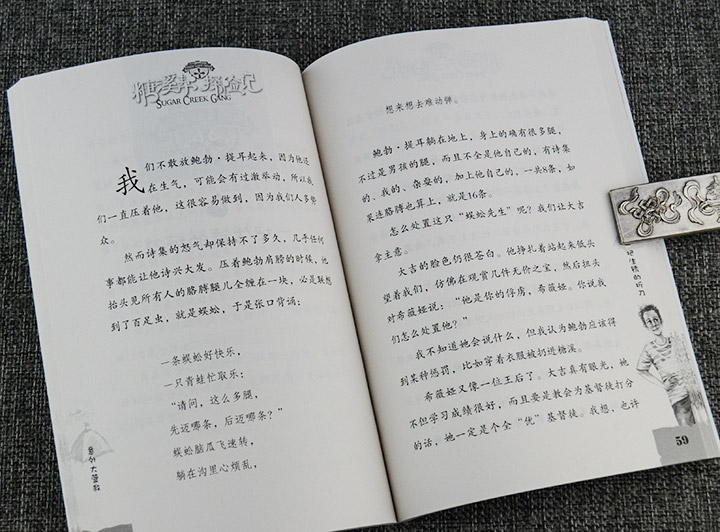 糖溪帮探险记
SUGAR CREEK GANG
我们不敢放鲍勃·提耳起来，因为他还
在生气，可能会有过激举动，所以我
们一直压着他，这很容易做到，因为我们人多势
众。
然而诗集的怒气却保持不了多久，几乎任何
事都能让他诗兴大发。压着鲍勃肩膀的时候，他
抬头见所有人的胳膊腿儿全缠在一块，必是联想
到了百足虫，就是蜈蚣，于是张口背诵：
一条蜈蚣好快乐，
一只青蛙忙取乐；
“请问，这么多腿，
先迈哪条，后迈哪条？”
蜈蚣脑瓜飞速转，
躺在沟里心烦乱，
意外大营救
想来想去难动弹。
鲍勃·提耳躺在地上，身上的确有很多腿，
不过是男孩的腿，而且不全是他自己的，有诗集
的、我的、杂耍的，加上他自己的，一共8条，如
果连胳膊也算上，就是16条。
怎么处置这只“蜈蚣先生”呢？我们让大吉
拿主意。
大吉的脸色仍很苍白。他挣扎着站起来低头
望着我们，仿佛在观赏几件无价之宝，然后扭头
对希薇娅说：“他是你的俘虏，希薇娅。你说我
们怎么处置他？”
我不知道她会说什么，但我认为鲍勃应该得
到某种惩罚，比如穿着衣服被扔进糖溪。
希薇娅又像一位王后了。大吉真有眼光，她
不但学习成绩很好，而且要是教会为基督徒打分
的话，她一定是个全“优”基督徒。我想，也许
生锈的折刀
59